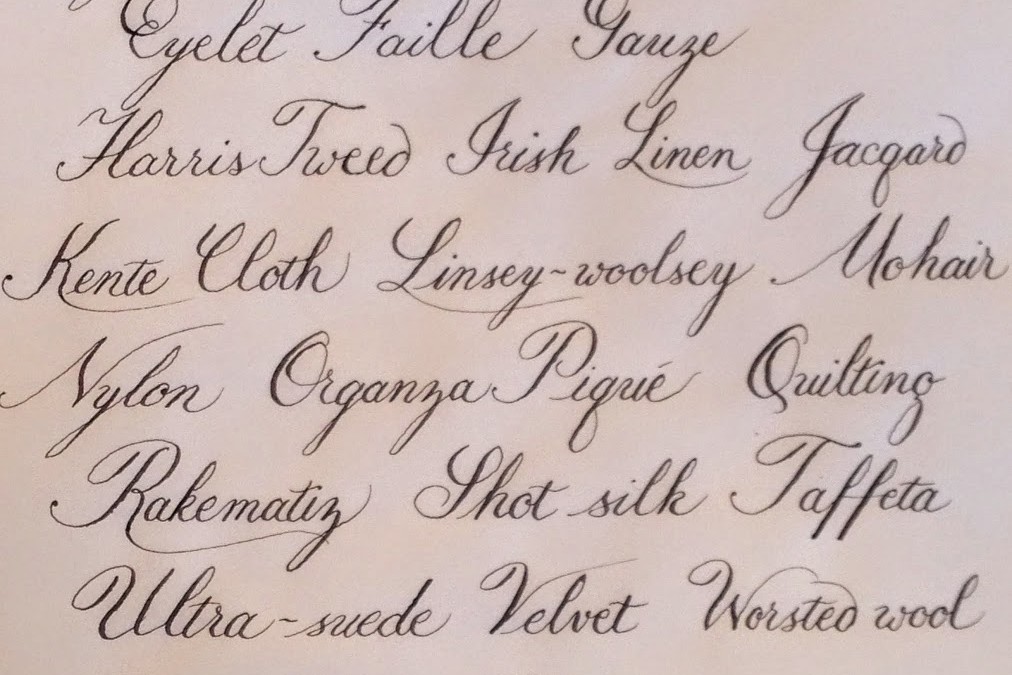 Eyelet Faille Gauze
Harris Tweed Irish Linen Jacqard
Kente Cloth Linsey-woolsey Mohair
Nylon Organza Piqué Quilting
Rakematiz Shot silk Taffeta
Ultra-suede Velvet Worsted wool